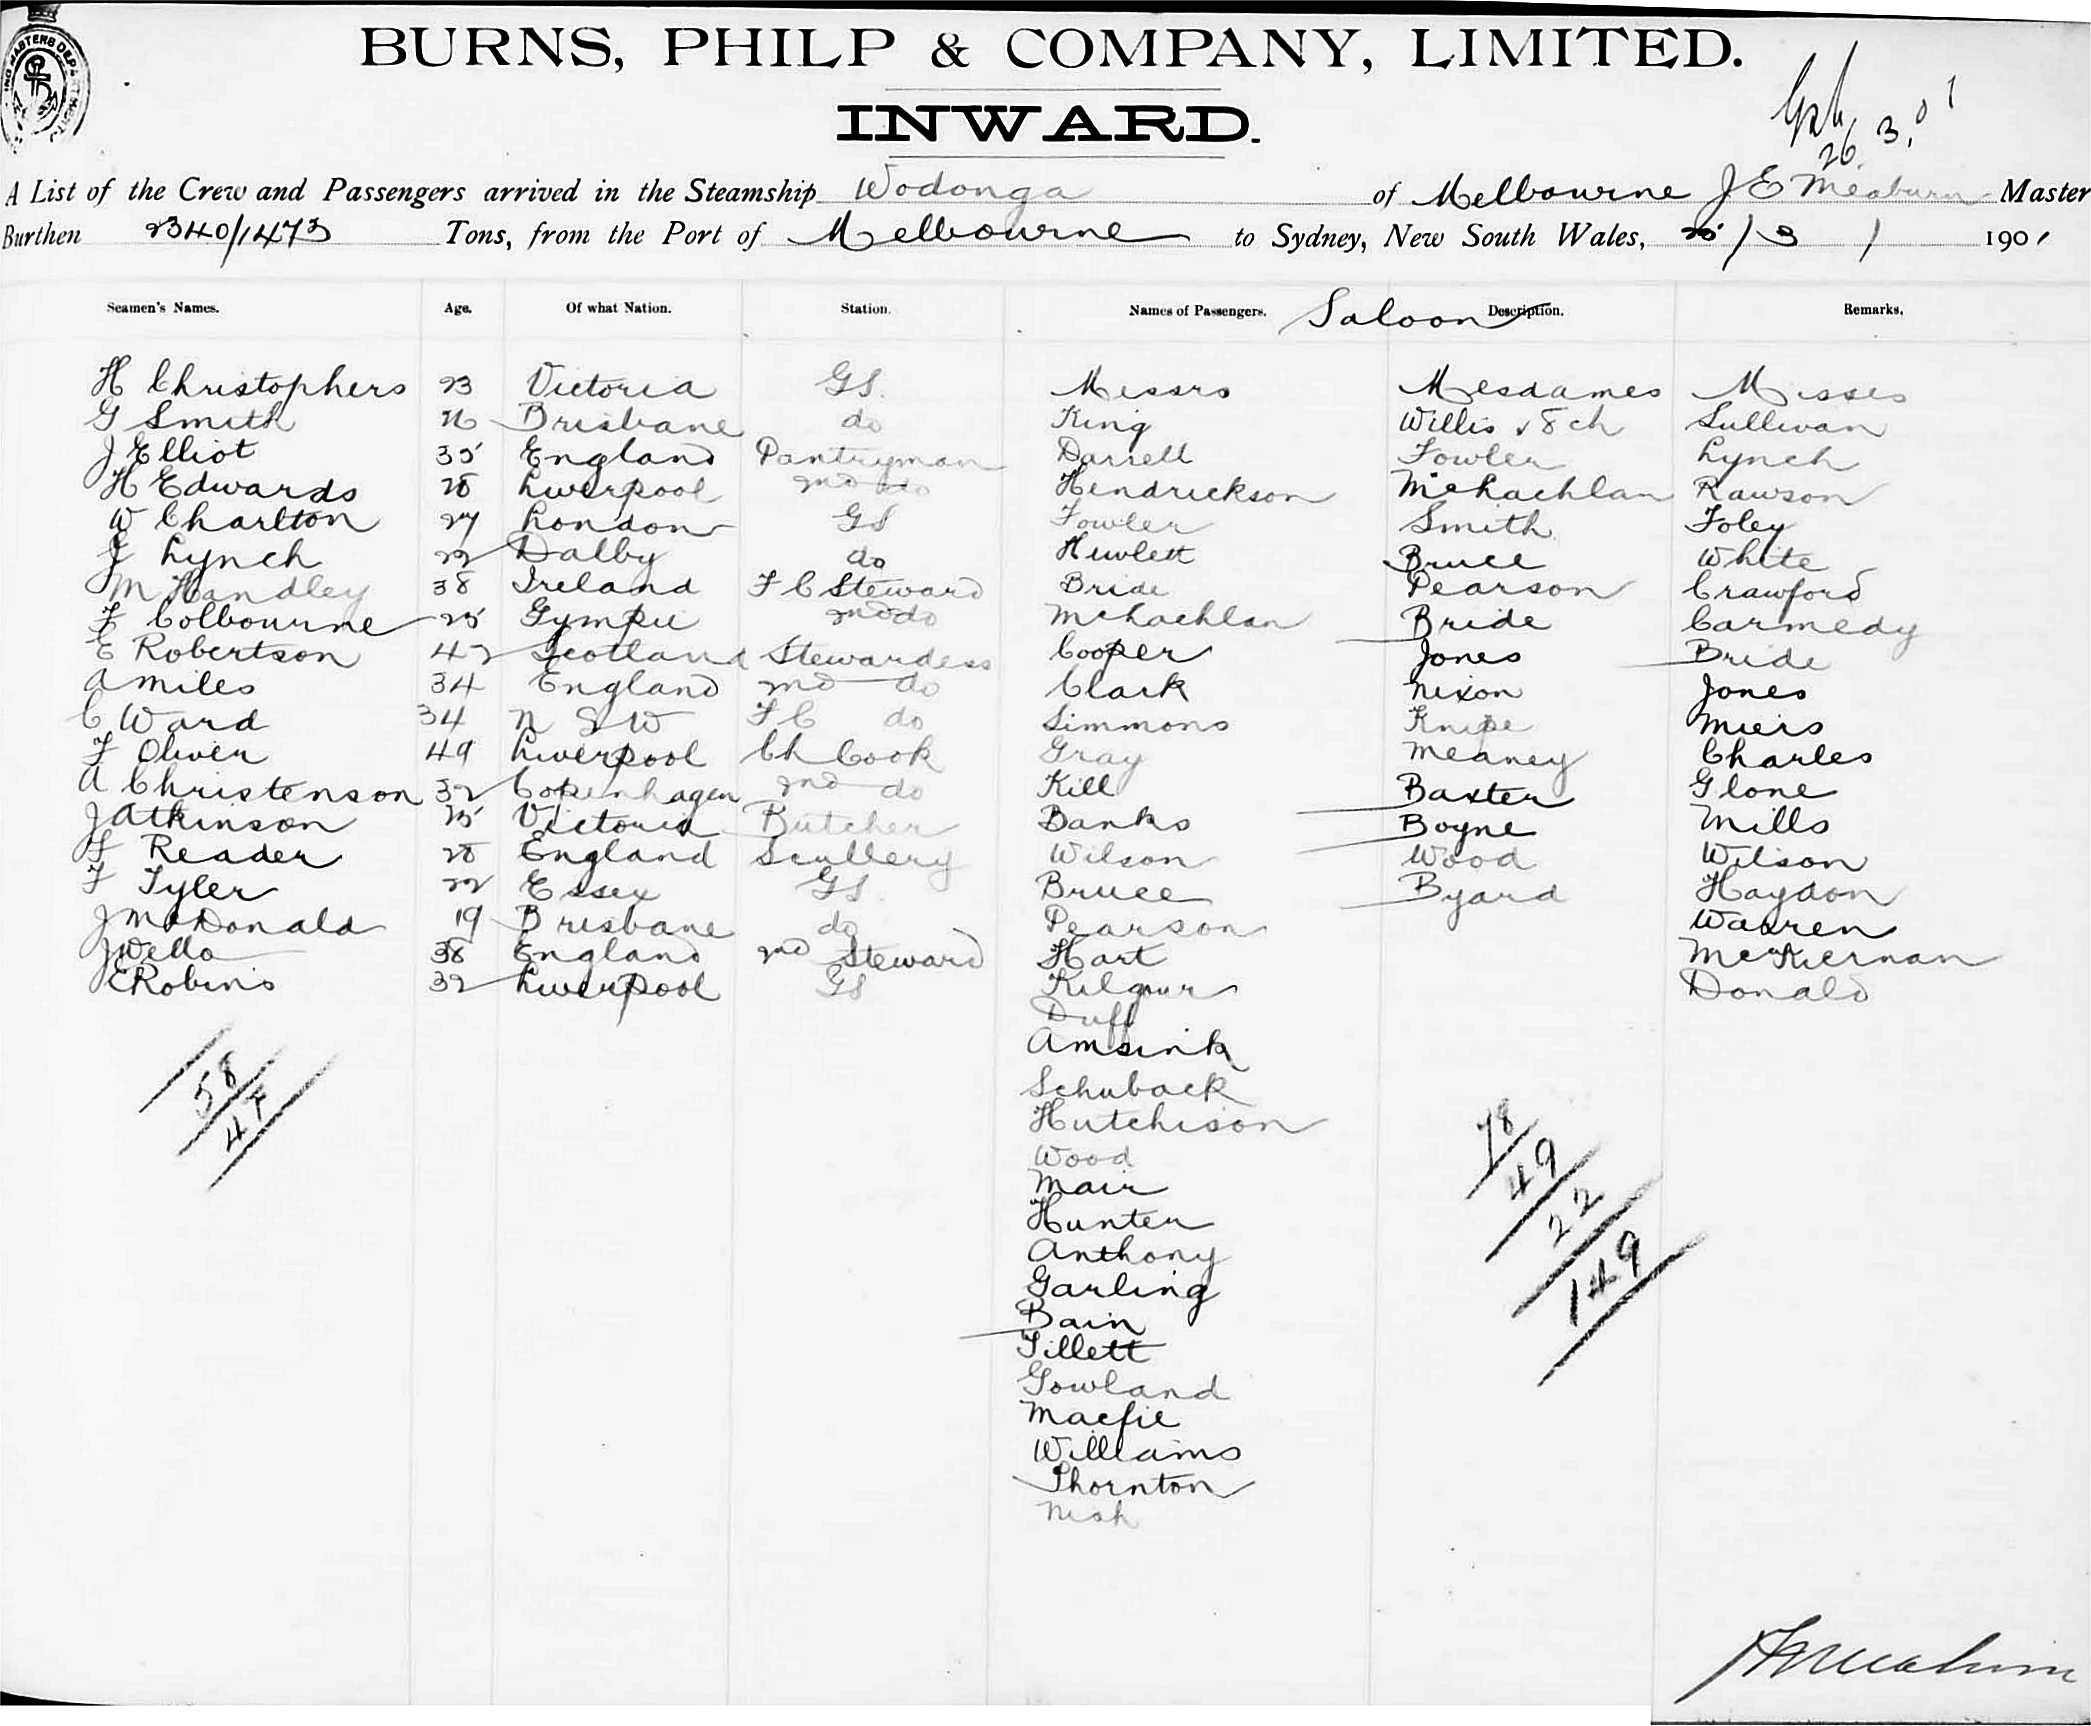 BURNS, PHILP & COMPANY, LIMITED.
INWARD.
26. 3. 01
A List of the Crew and Passengers arrived in the Steamship Wodonga of Melbourne J E Meaburn Master
Burthen 2340/1473 Tons, from the Port of Melbourne to Sydney, New South Wales, /3/ 1901
Seamen's Names. Age. Of what Nation. Station. Names of Passengers. Saloon Description. Remarks.
H Christophers 23 Victoria GS. Messrs Mesdames Misses
G Smith 26 Brisbane do King Willis & 8 ch Sullivan
J Elliot 35 England Pantryman Darrell Fowler Lynch
H Edwards 28 Liverpool 2nd do Hendrickson McLachlan Rawson
W Charlton 27 London GS Fowler Smith Foley
J Lynch 22 Dalby do Hewlett Bruce White
M Handley 38 Ireland F C Steward Bride Pearson Crawford
F Colbourne 25 Gympie 2nd do McLachlan Bride Carmedy
E Robertson 42 Scotland Stewardess Cooper Jones Bride
A Miles 34 England 2nd do Clark Nixon Jones
C Ward 34 N S W F C do Simmons Knipe Miers
F Oliver 49 Liverpool Ch Cook Gray Meaney Charles
A Christenson 32 Copenhagen 2nd do Kill Baxter Glone
J Atkinson 25 Victoria Butcher Banks Boyne Mills
F Reader 28 England Scullery Wilson Wood Wilson
F Tyler 22 Essex GS. Bruce Byard Haydon
J McDonald 19 Brisbane do Pearson Warren
J Wells 38 England 2nd Steward Hart McKiernan
E Robins 32 Liverpool GS Kilgour Donald
Duff
Amsink
Schuback
Hutchison
Wood
Mair
Hunter
Anthony
Garling
Bain
Tillett
Gowland
Macfie
Williams
Thornton
Nish
58
47
78
49
22
149